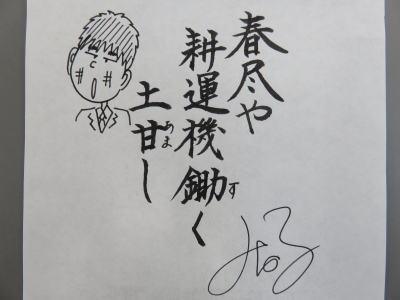 春尽や
耕運機鋤く
す
土甘し
あま